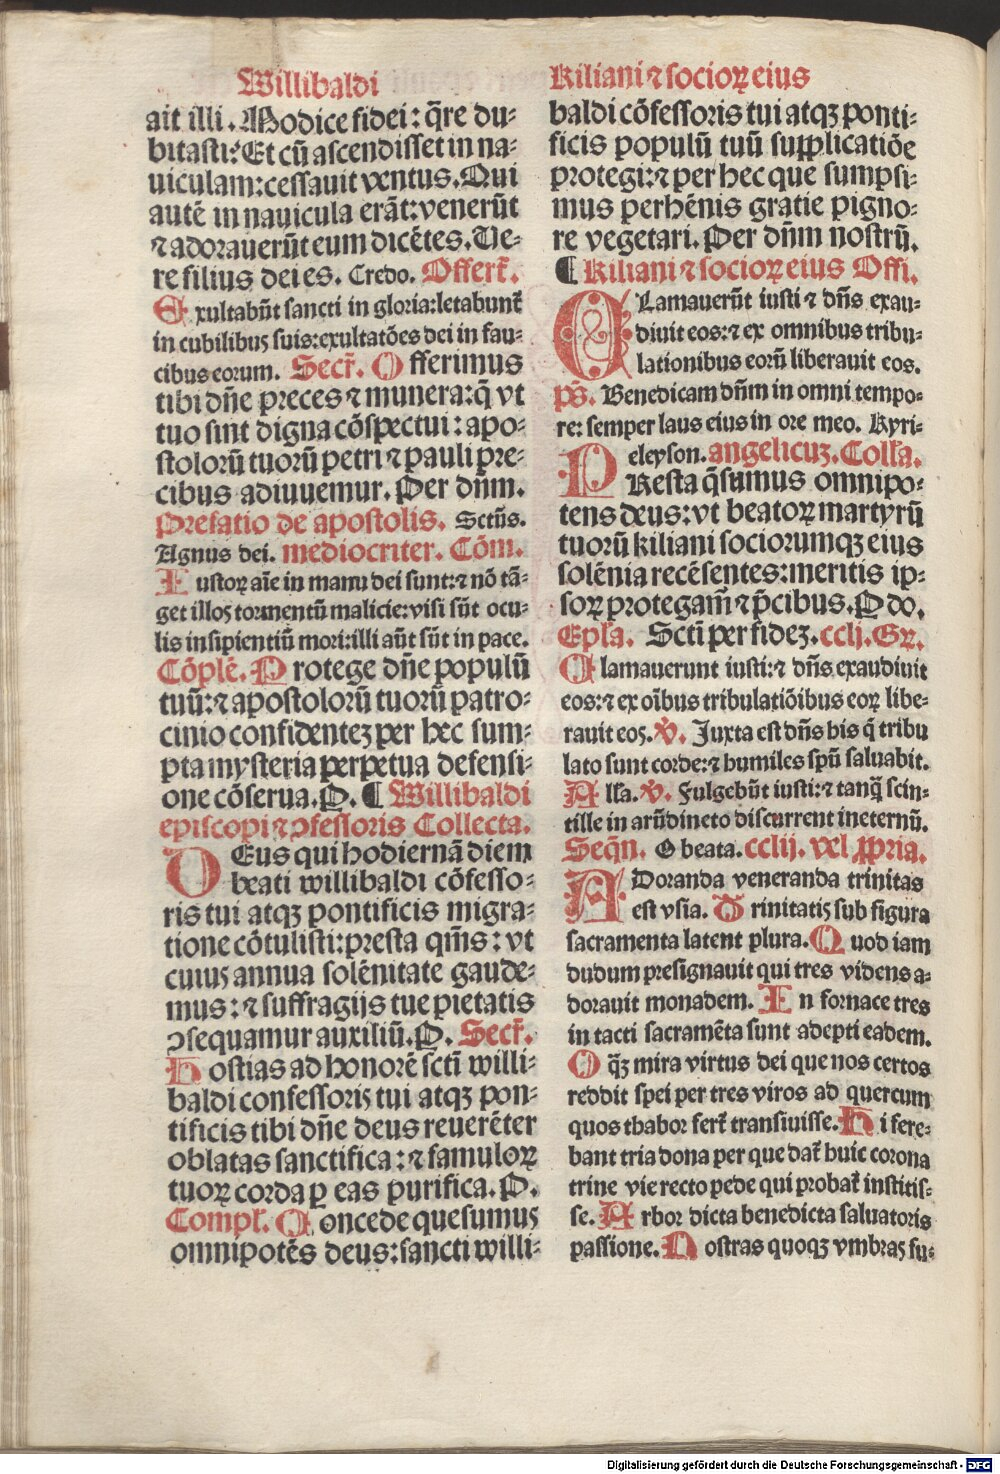 Willibaldi
ait illi. Modice fidei: q̃re du⸗
bitasti? Et cū ascendisset in na⸗
uiculam: cessauit ventus. Qui
autē in nauicula erāt: venerūt
⁊ adorauerūt eum dicētes. Ue⸗
re filius dei es. Credo. Offert̃.
Exultabūt sancti in gloria: letabunt̃
in cubilibus suis: exultatōes dei in fau⸗
cibus eorum. Secr̃. Offerimus
tibi dn̄e preces ⁊ munera: q̄ vt
tuo sint digna cōspectui: apo⸗
stolorū tuorū petri ⁊ pauli pre⸗
cibus adiuuemur. Per dn̄m.
Prefatio de apostolis. Sctūs.
Agnus dei. mediocriter. Cōm.
Iustoꝝ aīe in manu dei sunt: ⁊ nō tā⸗
get illos tormentū malicie: visi sūt ocu⸗
lis insipientiū mori: illi aūt sūt in pace.
Cōplē. Protege dn̄e populū
tuū: ⁊ apostolorū tuorū patro⸗
cinio confidenteʒ per hec sum⸗
pta mysteria perpetua defensi⸗
one cōserua. P. ¶ Willibaldi
episcopi ⁊ ꝯfessoris Collecta.
DEus qui hodiernā diem
beati willibaldi cōfesso⸗
ris tui atqꝫ pontificis migra⸗
tione cōtulisti: presta qm̄s: vt
cuius annua solēnitate gaude⸗
mus: ⁊ suffragijs tue pietatis
ꝯsequamur auxiliū. P. Secr̃.
Hostias ad honorē sctī willi⸗
baldi confessoris tui atqꝫ pon⸗
tificis tibi dn̄e deus reuerēter
oblatas sanctifica: ⁊ famuloꝝ
tuoꝝ corda ꝑ eas purifica. P.
Compl̃. Concede quesumus
omnipotēs deus: sancti willi⸗
Kiliani ⁊ socioꝝ eius
baldi cōfessoris tui atqꝫ ponti⸗
ficis populū tuū supplicatiōe
protegi: ⁊ per hec que sumpsi⸗
mus perhēnis gratie pigno⸗
re vegetari. Per dn̄m nostrū.
¶ Kiliani ⁊ socioꝝ eius Offi.
CLamauerūt iusti ⁊ dn̄s exau⸗
diuit eos: ⁊ ex omnibus tribu⸗
lationibus eorū liberauit eos.
ps̄. Benedicam dn̄m in omni tempo⸗
re: semper laus eius in ore meo. Kyri⸗
eleyson. angelicuʒ. Coll̃a.
PResta q̄sumus omnipo⸗
tens deus: vt beatoꝝ martyrū
tuorū kiliani sociorumqꝫ eius
solēnia recēsentes: meritis ip⸗
soꝝ protegam̃ ⁊ p̄cibus. P do.
Epl̃a. Sctī per fideʒ. cclj. Gr̃.
Clamauerunt iusti: ⁊ dn̄s exaudiuit
eos: ⁊ ex oībus tribulatiōibus eoꝝ libe⸗
rauit eos. ꝟ. Juxta est dn̄s his q̄ tribu
lato sunt corde: ⁊ humiles spū saluabit.
Alla. ꝟ. Fulgebūt iusti: ⁊ tanq̄ scin⸗
tille in arūdineto discurrent ineternū.
Seqn̄. O beata. cclij. vel ꝓpria.
ADoranda veneranda trinitas
est vsia. Trinitatis sub figura
sacramenta latent plura. Quod iam
dudum presignauit qui tres videns a⸗
dorauit monadem. In fornace tres
in tacti sacramēta sunt adepti eadem.
O qꝫ mira virtus dei que nos certos
reddit spei per tres viros ad quercum
quos thabor fert̃ transiuisse. Hi fere⸗
bant tria dona per que dat̃ huic corona
trine vie recto pede qui probat̃ institis⸗
se. Arbor dicta benedicta saluatoris
passione. Nostras quoqꝫ vmbras su⸗
Digitalisierung gefördert durch die Deutsche Forschungsgemeinschaft - DFG